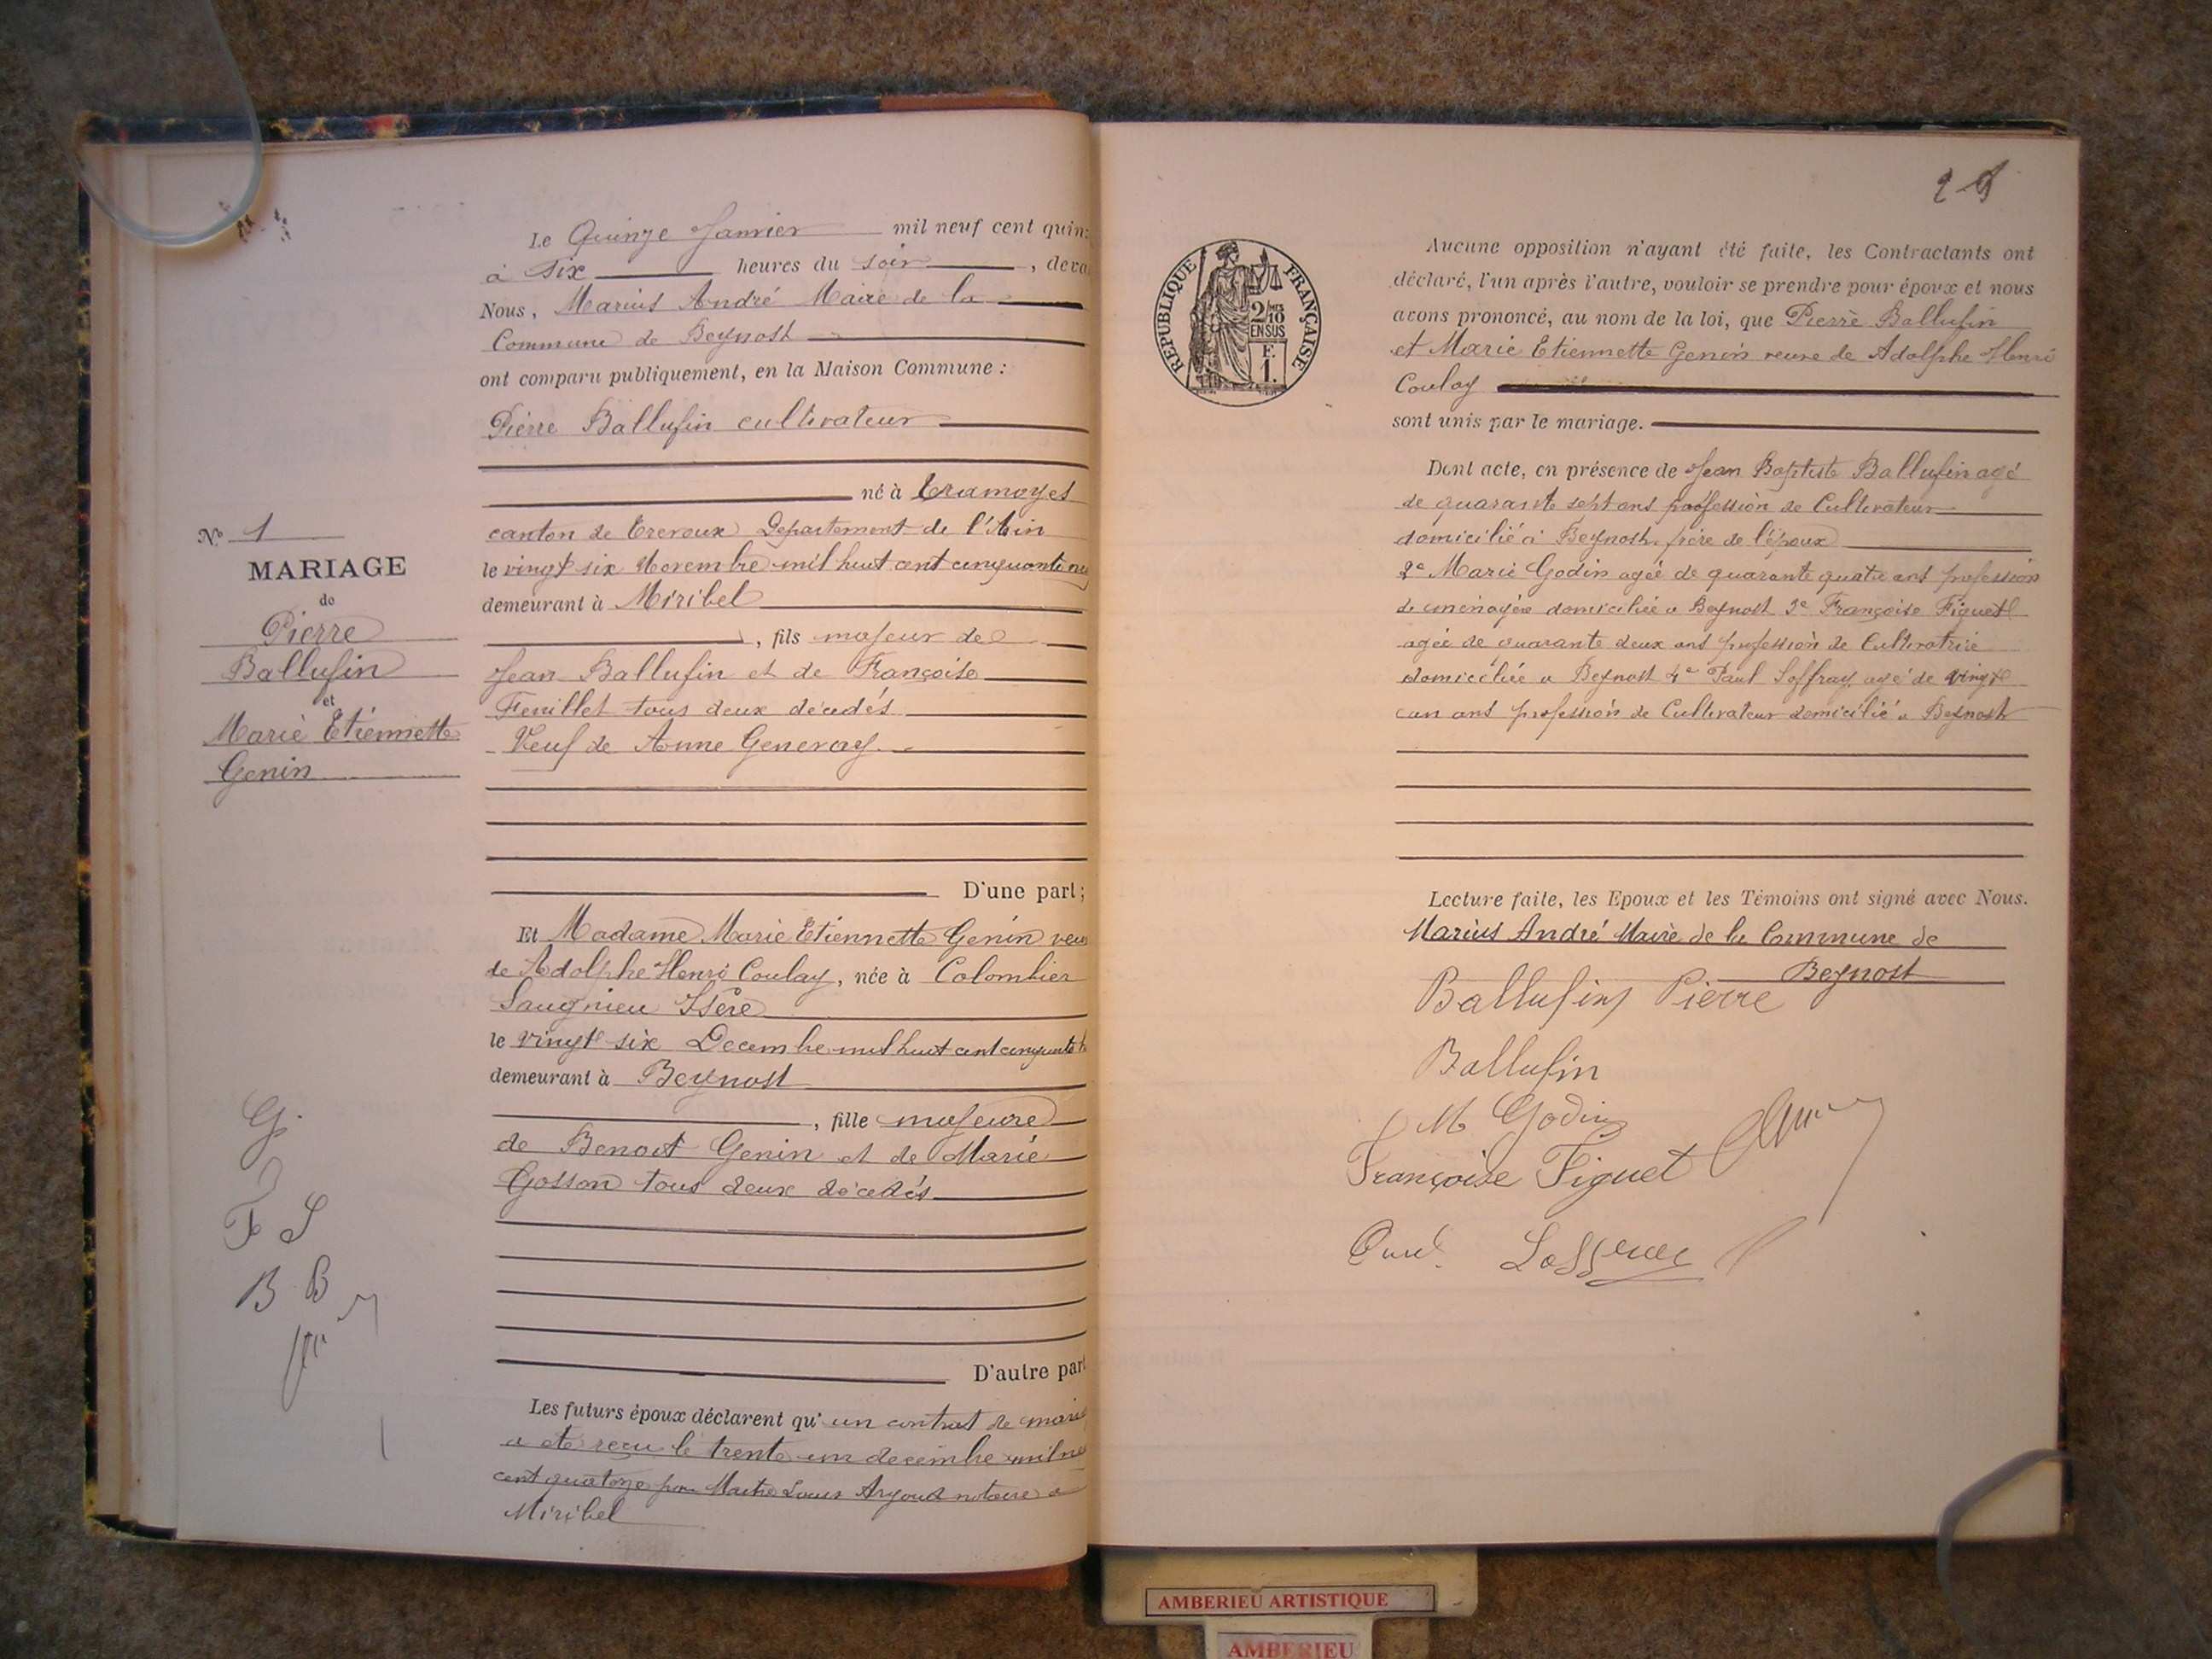 Le Quinze Janvier mil neuf cent quin
à six heures du soir, deva
Nous, Marius André Maire de la
Commune de Beynost
ont comparu publiquement, en la Maison Commune :
Pierre Ballufin cultivateur
né à Tramoyes
canton de Trevoux Departement de l'Ain
le vingt six Novembre mil huit cent cinquante
demeurant à Miribel
, fils majeur de
Jean Ballufin et de Françoise
Feuillet tous deux décédés
Veuf de Anne Genevay
D'une part;
Et Madame Marie Etiennette Genin veu
de Adolphe Henri Coulay, née à Colombier
Saugnieu Isère
le vingt six Decembre mil huit cent cinquante
demeurant à Beynost
, fille majeure
de Benoit Genin et de Marie
Gosson tous deux décédés
D'autre part
Les futurs époux déclarent qu'un contrat de maria
a été reçu le trente un decembre mil ne
cent quatorze par Maitre Louis Argoud notaire a
Miribel
N° 1
MARIAGE
de
Pierre
Ballufin
et
Marie Etiennette
Genin
G
F S
B B
29
RÉPUBLIQUE FRANÇAISE
2/10
EN SUS
F.
1.
Aucune opposition n'ayant été faite, les Contractants ont
déclaré, l'un après l'autre, vouloir se prendre pour époux et nous
avons prononcé, au nom de la loi, que Pierre Ballufin
et Marie Etiennette Genin veuve de Adolphe Henri
Coulay
sont unis par le mariage.
Dont acte, en présence de Jean Baptiste Ballufin agé
de quarante sept ans profession de Cultivateur
domicilié à Beynost frère de l'époux
2e Marie Godin agée de quarante quatre ans profession
de ménagère domiciliée a Beynost 3e Françoise Figuet
agée de quarante deux ans profession de Cultivatrice
domiciliée a Beynost 4e Paul Soffray agé de vingt
un ans profession de Cultivateur domicilié a Beynost
Lecture faite, les Epoux et les Témoins ont signé avec Nous.
Marius André Maire de la Commune de
Beynost
Ballufin Pierre
Ballufin
M Godin
Françoise Figuet
AMBERIEU ARTISTIQUE
AMBERIEU